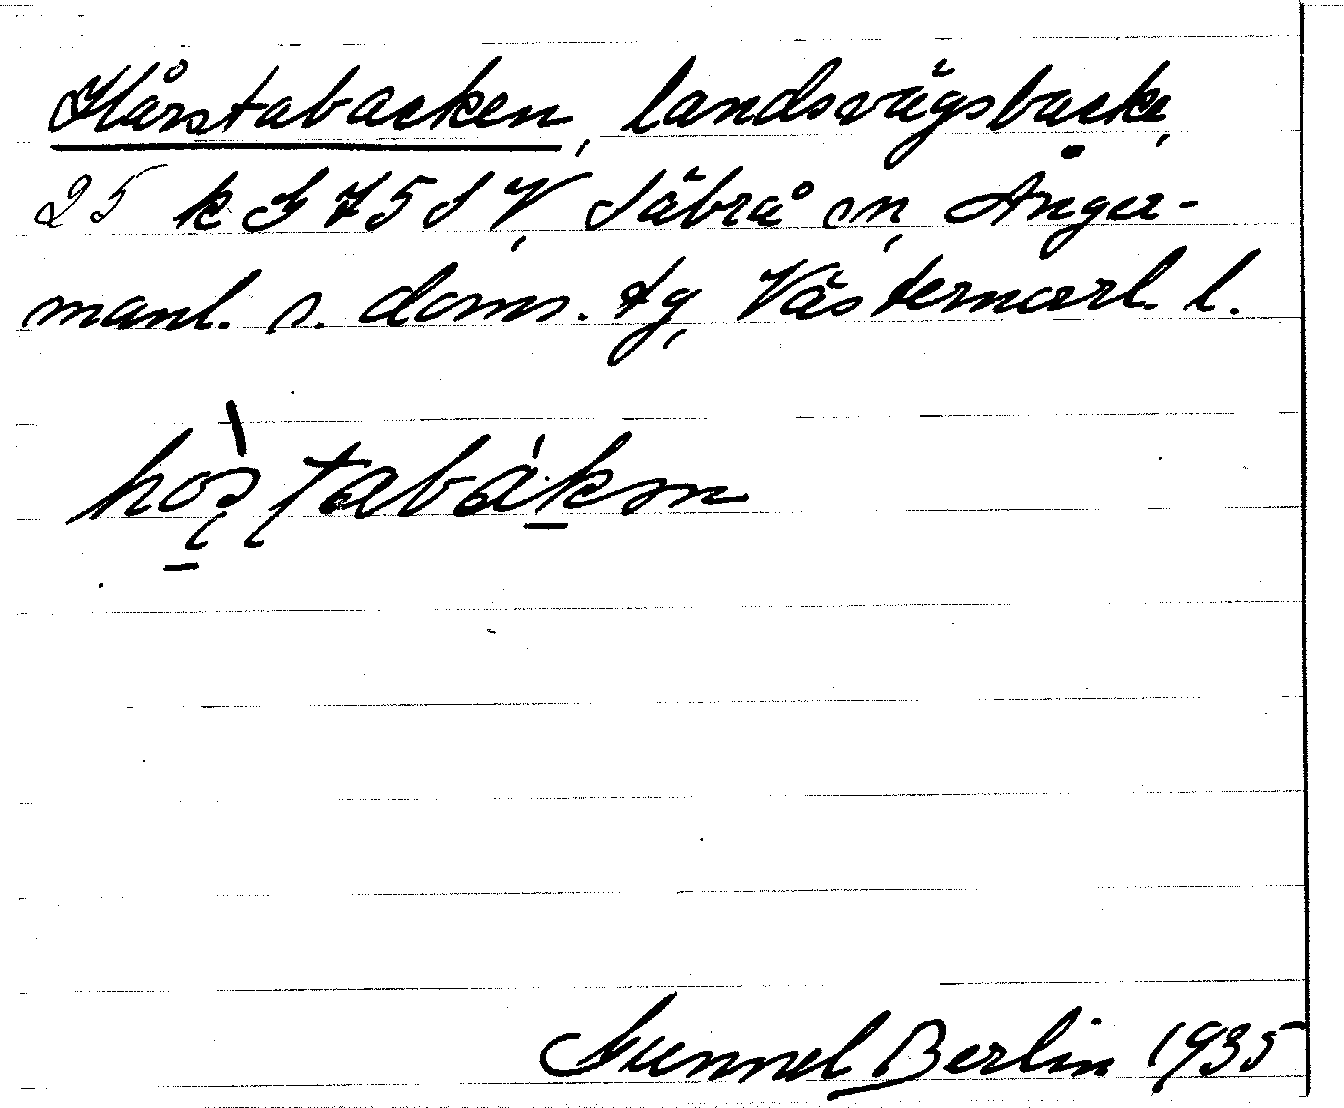 Hårstabacken, landsvägsbacke,
25 k G 75 S V, Säbrå sn, Ånger-
manl. s. doms. tg, Västernorrl. l.
Gunnel Berlin 1935